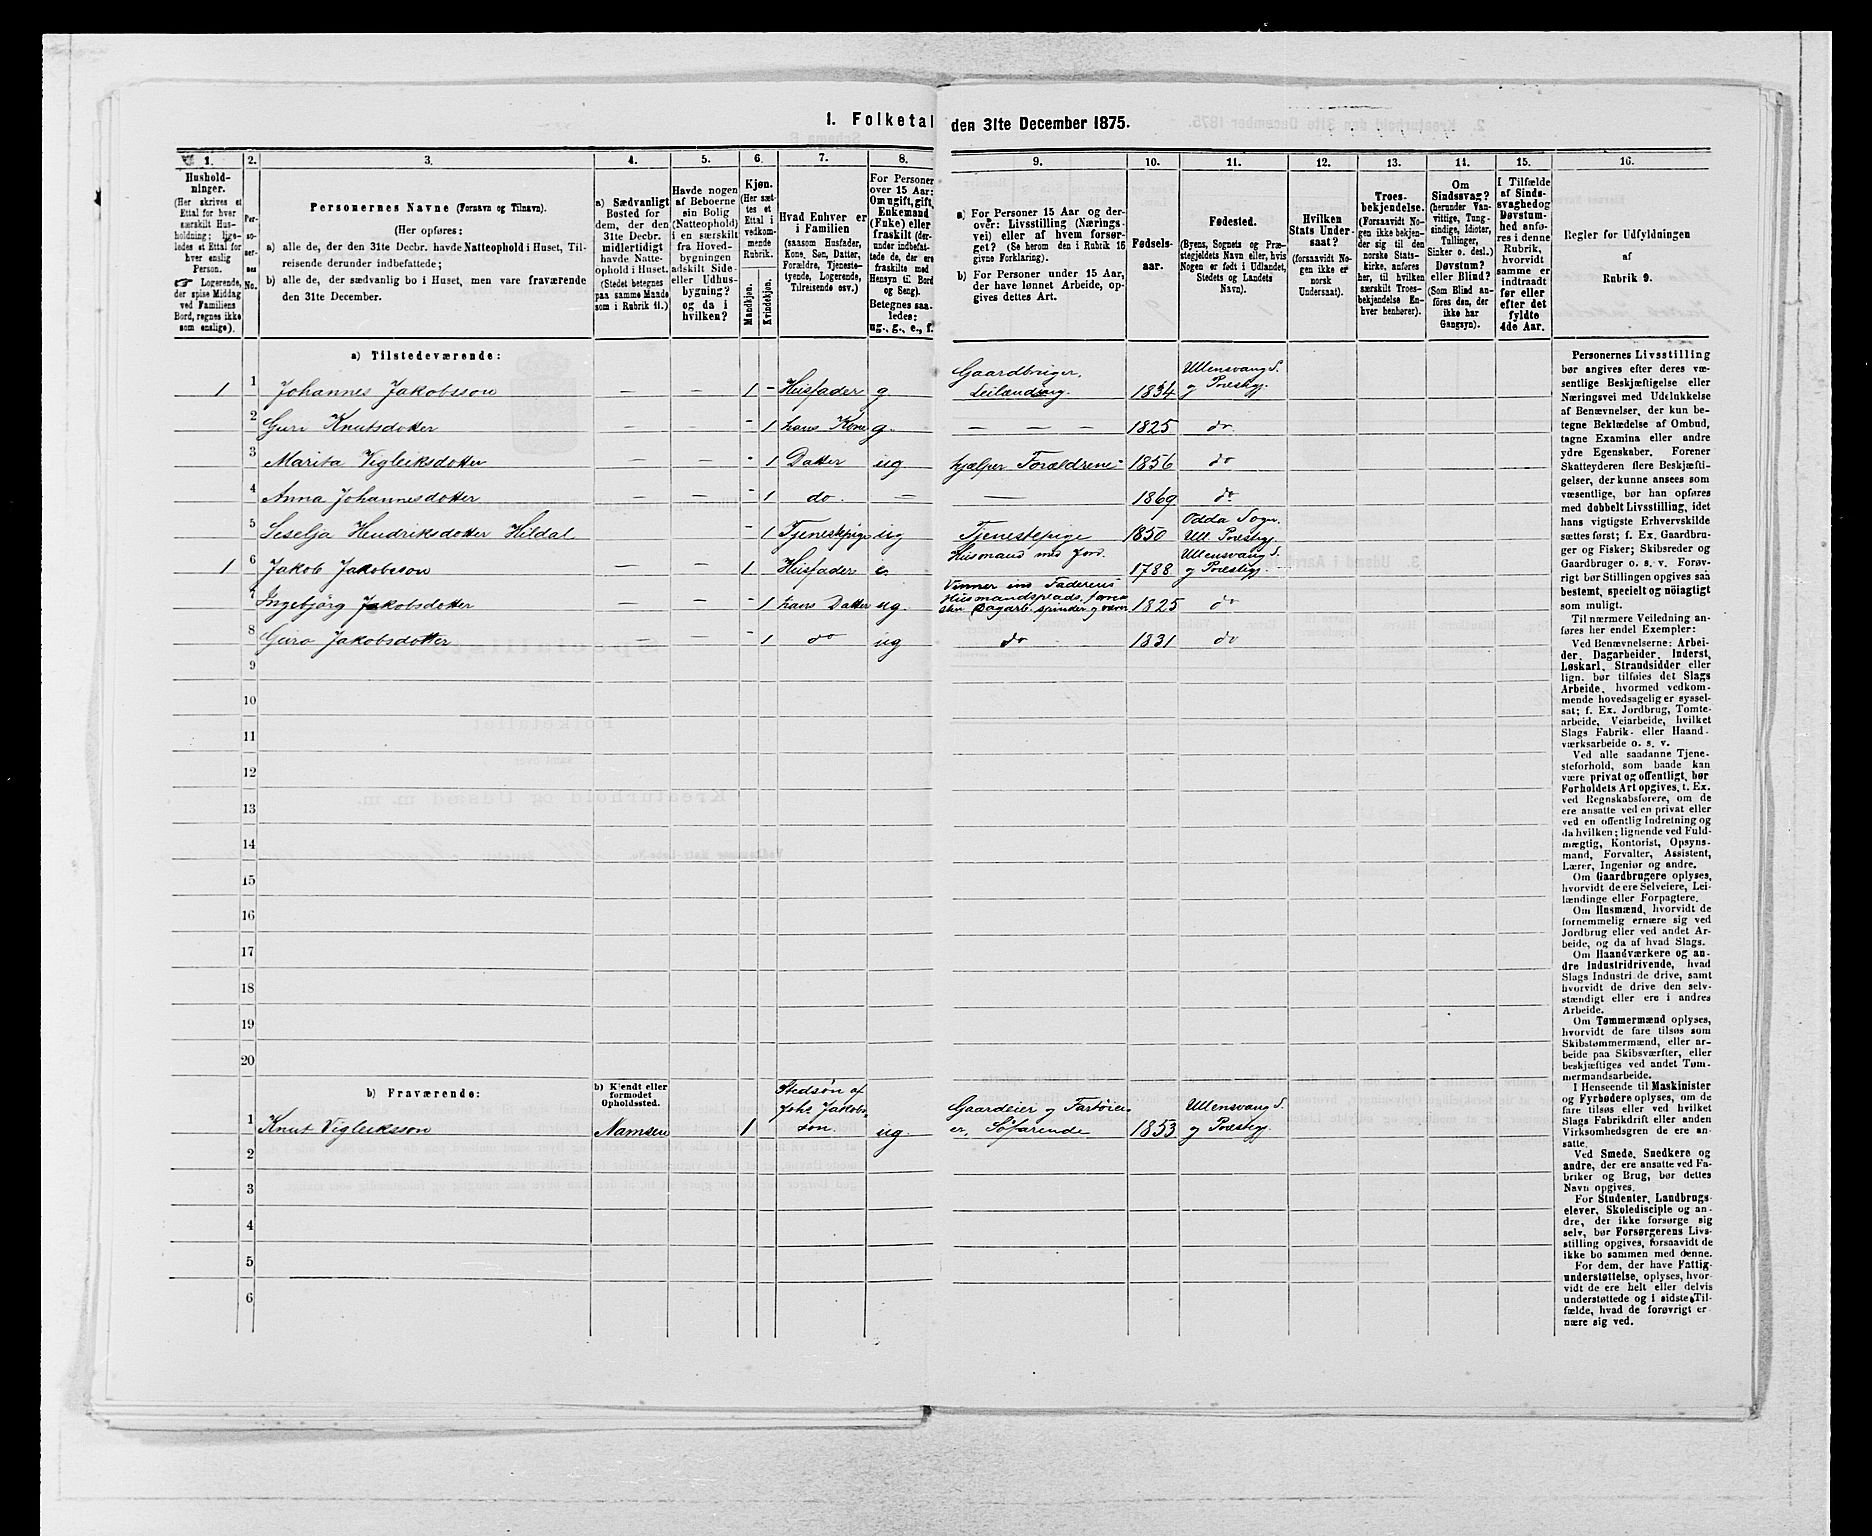 1. Folketal den 31te December 1875.
1. 2. 3. 4. 5. 6. 7. 8. 9. 10. 11. 12. 13. 14. 15. 16.
Hushold-
ninger.
(Her skrives et
Ettal for hver
særskilt Hus-
holdning; lige-
ledes et Ettal for
hver enslig
Person.
☞ Logerende,
der spise Middag
ved Familiens
Bord, regnes ikke
som enslige).
Per-
so-
ner-
nes
No.
Personernes Navne (Fornavn og Tilnavn).
(Her opføres:
a) alle de, der den 31te Decbr. havde Natteophold i Huset, Til-
reisende derunder indbefattede;
b) alle de, der sædvanlig bo i Huset, men vare fraværende
den 31te December.
a) Sædvanligt
Bosted for
dem, der den
31te Decbr.
midlertidigt
havde Natte-
ophold i Huset.
(Stedet betegnes
paa samme Maade
som i Rubrik 11.)
Havde nogen
af Beboerne
sin Bolig
(Natteophold)
i en særskilt
fra Hoved-
bygningen
adskilt Side-
eller Udhus-
bygning?
og da i
hvilken?
Kjøn.
(Her sæt-
tes et
Ettal i
vedkom-
mende
Rubrik.
Mandkjøn.
Kvindekjøn.
Hvad Enhver er
i Familien
(saasom Husfader,
Kone, Søn, Datter,
Forældre, Tjeneste-
tyende, Logerende,
Tilreisende osv.)
For Personer
over 15 Aar:
Om ugift, gift,
Enkemand
(Enke) eller
fraskilt (der-
under indbefat-
tede de, der ere
fraskilte med
Hensyn til Bord
og Seng).
Betegnes saa-
ledes:
ug., g., e., f.
a) For Personer 15 Aar og der-
over: Livsstilling (Nærings-
vei) eller af hvem forsør-
get? (Se herom den i Rubrik 16
givne Forklaring).
b) For Personer under 15 Aar,
der have lønnet Arbeide, op-
gives dettes Art.
Fødsels-
aar.
Fødested.
(Byens, Sognets og Præ-
stegjeldets Navn eller, hvis
Nogen er født i Udlandet,
Stedets og Landets
Navn).
Hvilken
Stats Under-
saat?
(forsaavidt No-
gen ikke er
norsk
Undersaat).
Troes-
bekjendelse.
(Forsaavidt No-
gen ikke bekjen-
der sig til den
norske Stats-
kirke, anføres
her, til hvilken
særskilt Troes-
bekjendelse En-
hver henhører).
Om
Sindssvag?
(herunder Van-
vittige, Tung-
sindige, Idioter,
Tullinger,
Sinker o. desl.)
Døvstum?
eller Blind?
(Som Blind an-
føres den, der
ikke har
Gangsyn).
I Tilfælde
af Sinds-
svaghed og
Døvstum-
hed anfø-
res i denne
Rubrik,
hvorvidt
samme er
indtraadt
før eller
efter det
fyldte
4de Aar.
Regler for Udfyldningen
af
Rubrik 9.
a) Tilstedeværende:
1 1 Johannes Jakobsson — — 1 – Husfader g Gaardbruger, Leilænding. 1834 Ullensvang S. og Præstgj.
2 Guri Knutsdotter — — - 1 hans Kone g. — — — 1825 do
3 Marita Vigleiksdotter — — - 1 Datter ug hjælper Forældrene 1856 do
4 Anna Johannesdotter — — - 1 do. — — 1869 do
5 Seselja Hendriksdotter Hildal - 1 Tjenestepige ug Tjenestepige 1850 Odda Sogn Ull. Præstgj.
1 6 Jakob Jakobsson — — 1 Husfader e. Husmand med Jord. 1788 Ullensvang S. og Præstgj.
7 Ingebjörg Jakobsdotter — — - 1 hans Datter ug. Faderens Husmandsplads, spinder og væver 1825 do
8 Guro Jakobsdotter — — - 1 do ug do 1831 do
9
10
11
12
13
14
15
16
17
18
19
20
b) Fraværende:
b) Kjendt eller
formodet
Opholdssted.
1 Knut Vigleiksson Namsen 1 Stedsøn af Johs Jakobsson. ug. Gaardeier og Søfarende 1853 Ullensvang S. og Præstgj.
2
3
4
5
6
Personernes Livsstilling
bør angives efter deres væ-
sentlige Beskjæftigelse eller
Næringsvei med Udelukkelse
af Benævnelser, der kun be-
tegne Beklædelse af Ombud,
tagne Examina eller andre
ydre Egenskaber. Forener
Skatteyderen flere Beskjæfti-
gelser, der kunne ansees som
væsentlige, bør han opføres
med dobbelt Livsstilling, idet
hans vigtigste Erhvervskilde
sættes først; f. Ex. Gaardbru-
ger og Fisker; Skibsreder og
Gaardbruger o. s. v. Forøv-
rigt bør Stillingen opgives saa
bestemt, specielt og nöiagtigt
som muligt.
Til nærmere Veiledning an-
føres her endel Exempler:
Ved Benævnelserne: Arbei-
der, Dagarbeider, Inderst,
Løskarl, Strandsidder eller
lign. bør tilføies det Slags
Arbeide, hvormed vedkom-
mende hovedsagelig er syssel-
sat; f. Ex. Jordbrug, Tomte-
arbeide, Veiarbeide, hvilket
Slags Fabrik- eller Haand-
værksarbeide o. s. v.
Ved alle saadanne Tjene-
steforhold, som baade kan
være privat og offentligt, bør
Forholdets Art opgives, t. Ex.
ved Regnskabsførere, om de
ere ansatte ved en privat eller
ved en offentlig Indretning og
da hvilken; lignende ved Fuld-
mægtig, Kontorist, Opsyns-
mand, Forvalter, Assistent,
Lærer, Ingeniør og andre.
Om Gaardbrugere oplyses,
hvorvidt de ere Selveiere, Lei-
lændinge eller Forpagtere.
Om Husmænd, hvorvidt de
fornemmelig ernære sig ved
Jordbrug eller ved andet Ar-
beide, og da af hvad Slags.
Om Haandværkere og an-
dre Industridrivende, hvad
Slags Industri de drive, samt
hvorvidt de drive den selv-
stændigt eller ere i andres
Arbeide.
Om Tømmermænd oplyses,
hvorvidt de fare tilsøs som
Skibstømmermænd, eller ar-
beide paa Skibsværfter, eller
beskjæftiges ved andet Tøm-
mermandsarbeide.
I Henseende til Maskinister
og Fyrbødere oplyses, om de
fare tilsøs eller ved hvilket
Slags Fabrikdrift eller anden
Virksomhedsgren de ere an-
satte.
Ved Smede, Snedkere og
andre, der ere ansatte ved Fa-
briker og Brug, bør dettes
Navn opgives.
For Studenter, Landbrugs-
elever, Skoledisciple og an-
dre, der ikke forsørge sig
selv, bør Forsørgerens Livs-
stilling opgives, forsaavidt de
ikke bo sammen med denne.
For dem, der have Fattig-
understøttelse, oplyses, hvor-
vidt de ere helt eller delvis
understøttede og i sidste Til-
fælde, hvad de forøvrigt er-
nære sig ved.